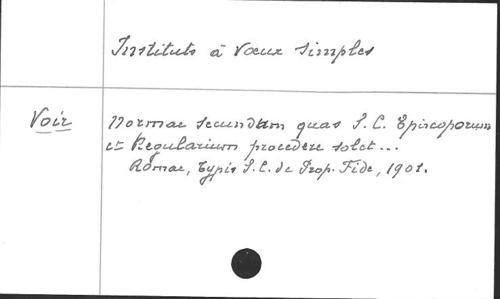 Instituts à Voeux Simples
Voir
Normae secundum quas S. C. Episcoporum
et Regularium procedere solet...
Romae, typis S. C. de Prop. Fide, 1901.